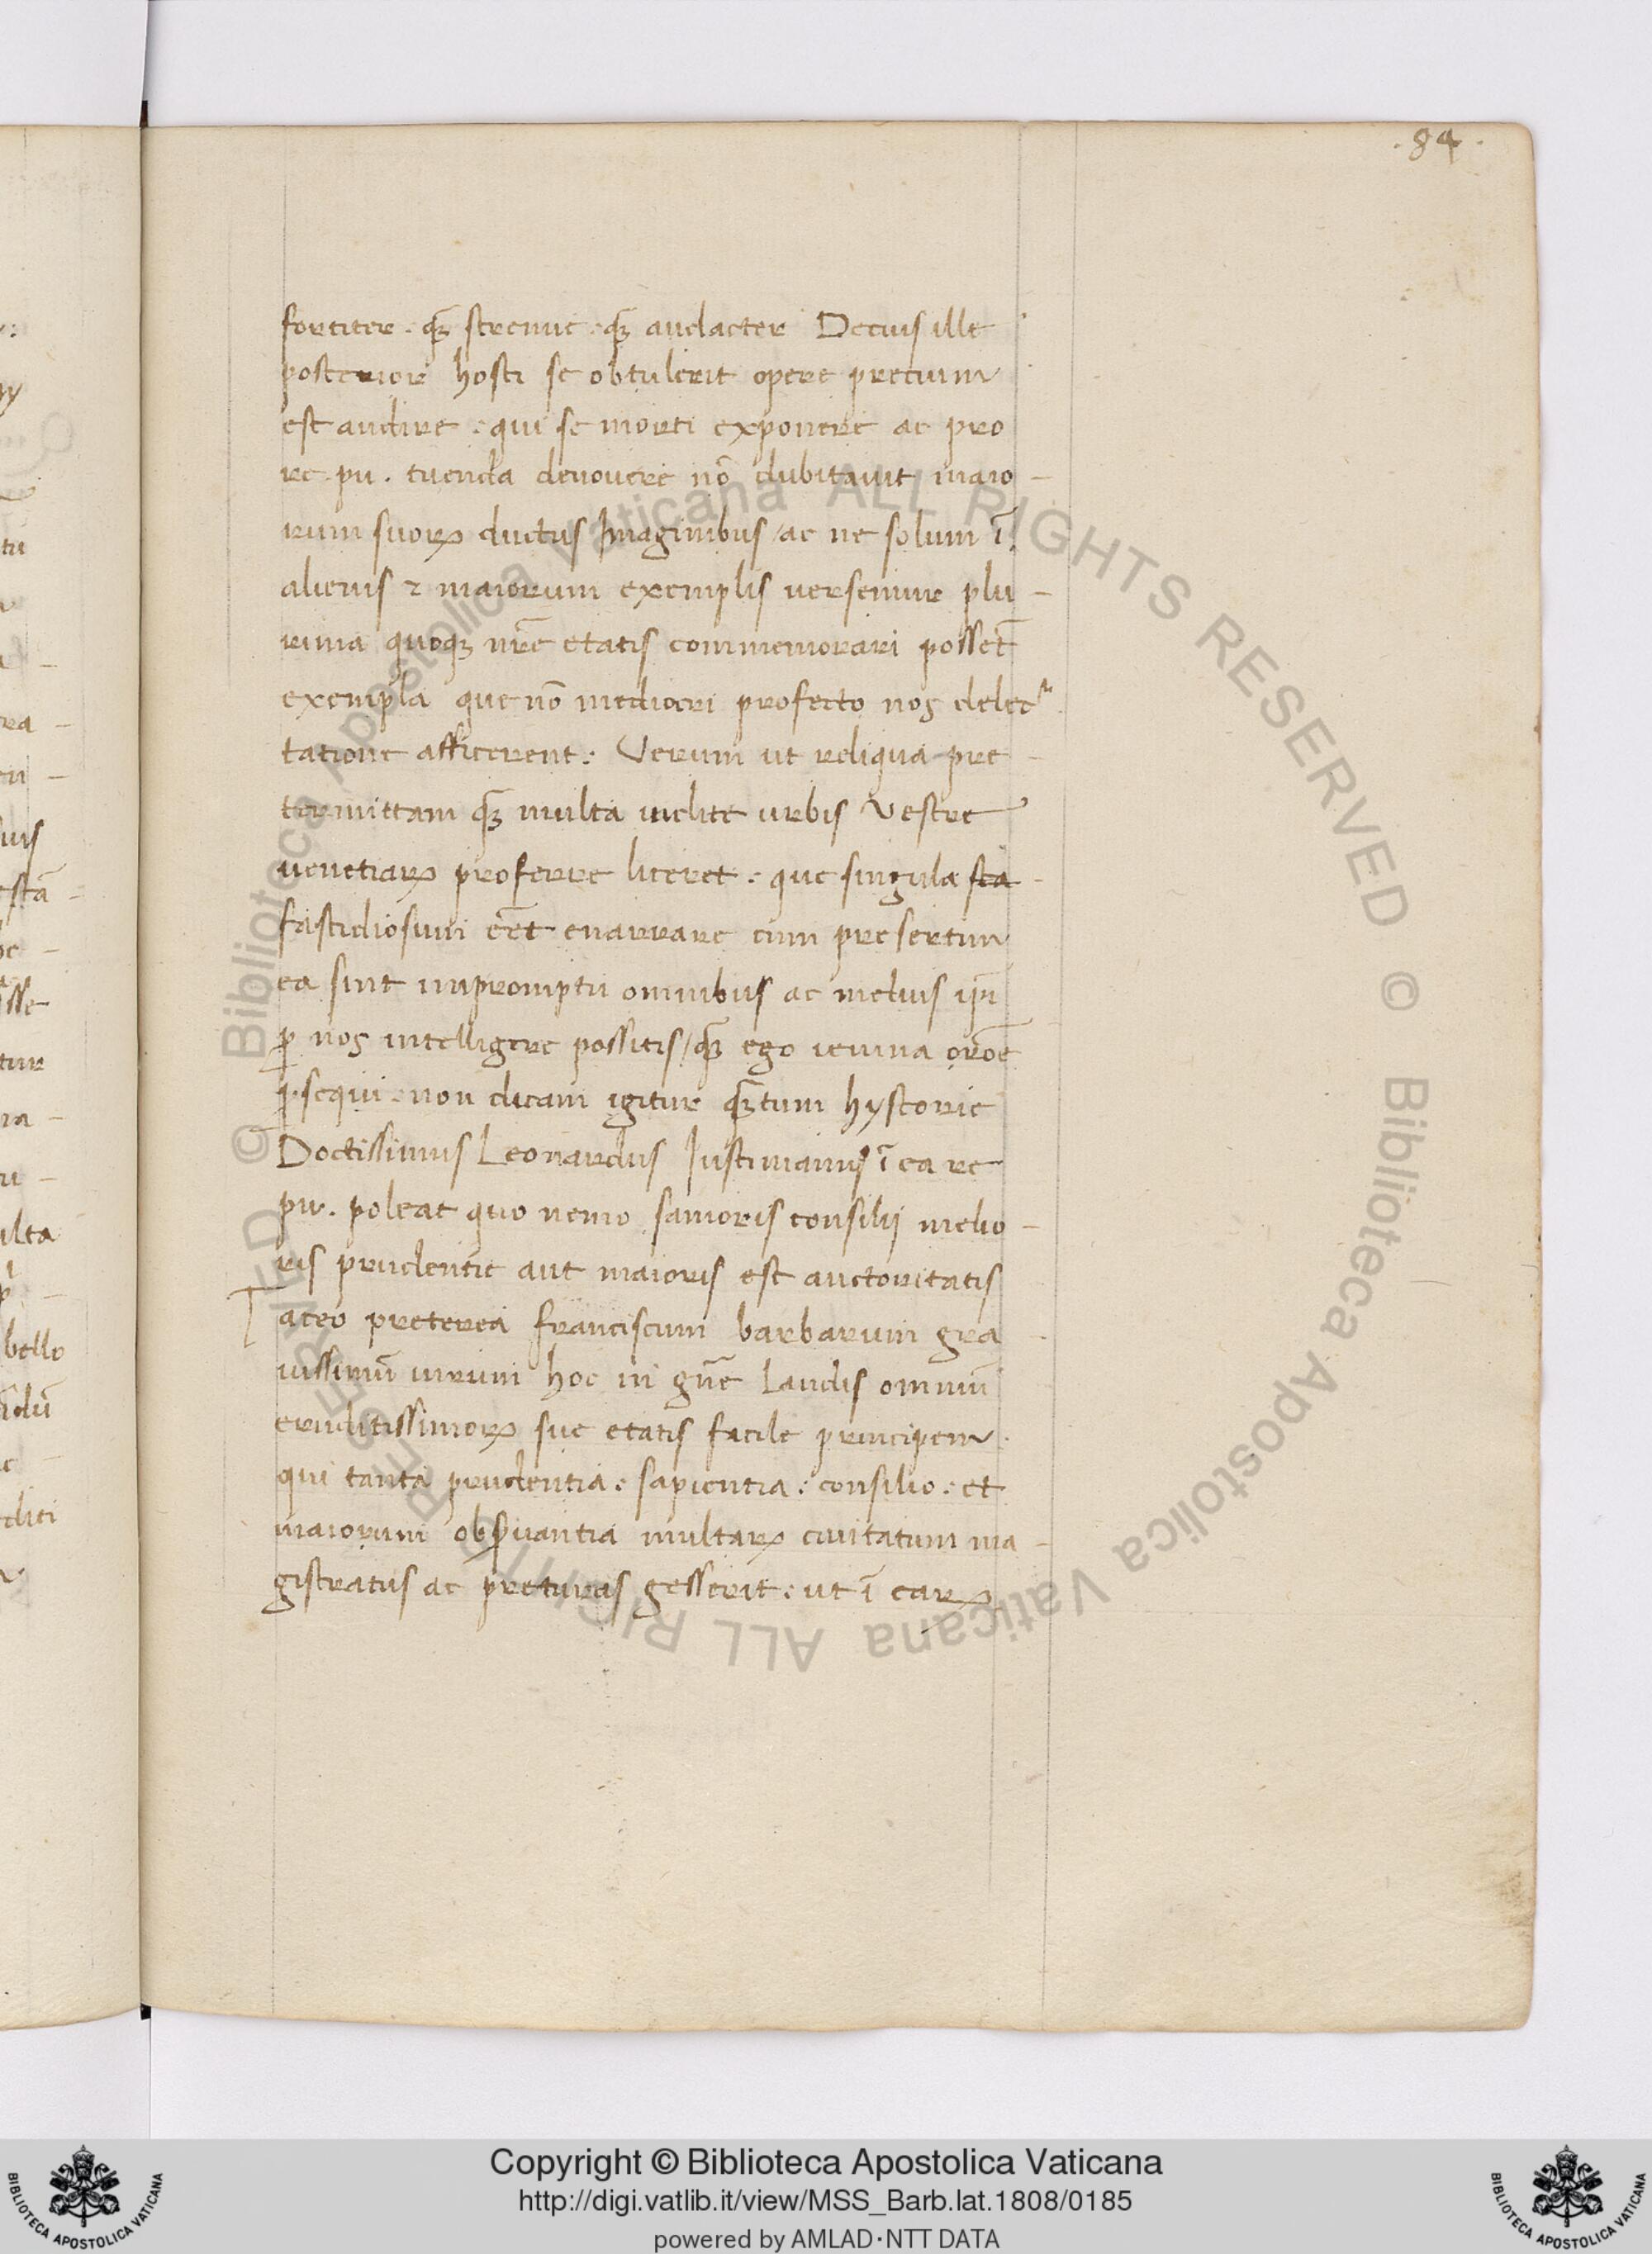 .84.
fortiter . qꝫ strenue . qꝫ audacter Decius ille
posterior hosti se obtulerit opere precium
est audire : qui se morti exponere ac pro
re . pu . tuenda deuouere nō dubitauit maio -
rum suoꝝ ductus Imaginibus / ac ne solum ī
alienis ⁊ maiorum exemplis uersemur plu -
rima quoqꝫ nr̄e etatis commemorari possēt
exempla que nō mediocri profecto nos delec
tatione afficerent : Verum ut reliqua pre -
termittam qꝫ multa inclite urbis Vestre
uenetiaꝝ proferre liceret : que singula sta -
fastidiosum eēt enarrare cum presertim
ea sint impromptu omnibus ac melius ip̄i
ꝑ nos intelligere possitis / qꝫ ego ieiuna orōe
ꝓsequi . non dicam igitur qꝫtum hystorie
Doctissimus Leonardus Iustinianus ī ea re
pu . poleat quo nemo sanioris consilij melio -
ris prudentie aut maioris est auctoritatis
Taceo preterea franciscum barbarum gra -
uissimū uirum hoc in gn̄e laudis omniū
eruditissimoꝝ sue etatis facile principem .
qui tanta prudentia : sapientia : consilio : et
maiorum obꝭuantia multaꝝ ciuitatum ma -
gistratus ac preturas gesserit : ut ī eaꝝ
© Biblioteca Apostolica Vaticana ALL RIGHTS RESERVED © Biblioteca Apostolica Vaticana ALL RIGHTS RESERVED
Copyright © Biblioteca Apostolica Vaticana
http://digi.vatlib.it/view/MSS_Barb.lat.1808/0185
powered by AMLAD·NTT DATA
BIBLIOTECA APOSTOLICA VATICANA
BIBLIOTECA APOSTOLICA VATICANA